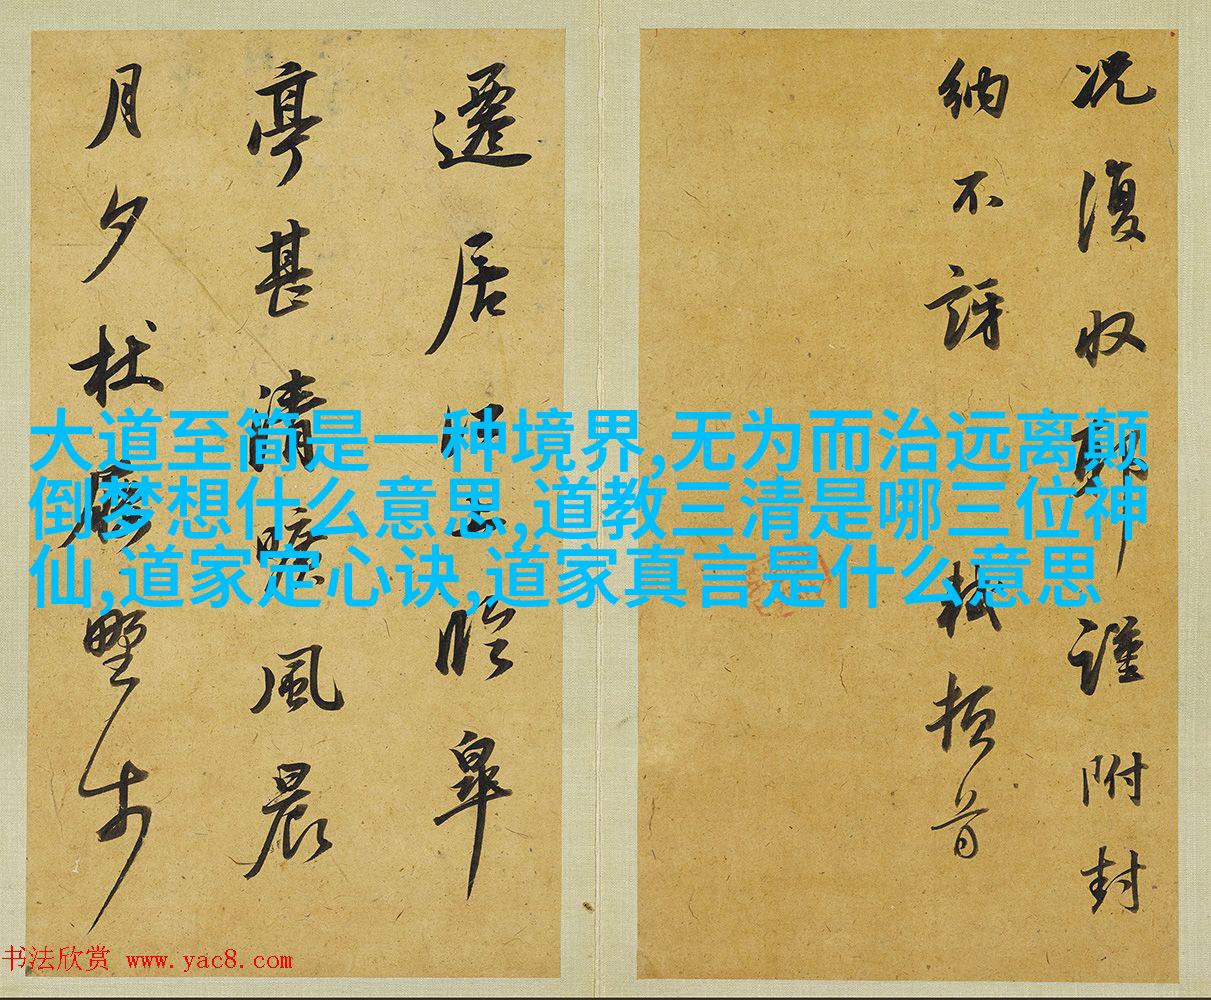 况復収耶謹附封
納不訝軾頓首
遷居江上臨皋
亭甚清曠風晨
月夕杖屨野步
大道至简是一种境界,无为而治远离颠
倒梦想什么意思,道教三清是哪三位神
仙,道家定心诀,道家真言是什么意思
书法欣赏 www.yac8.com